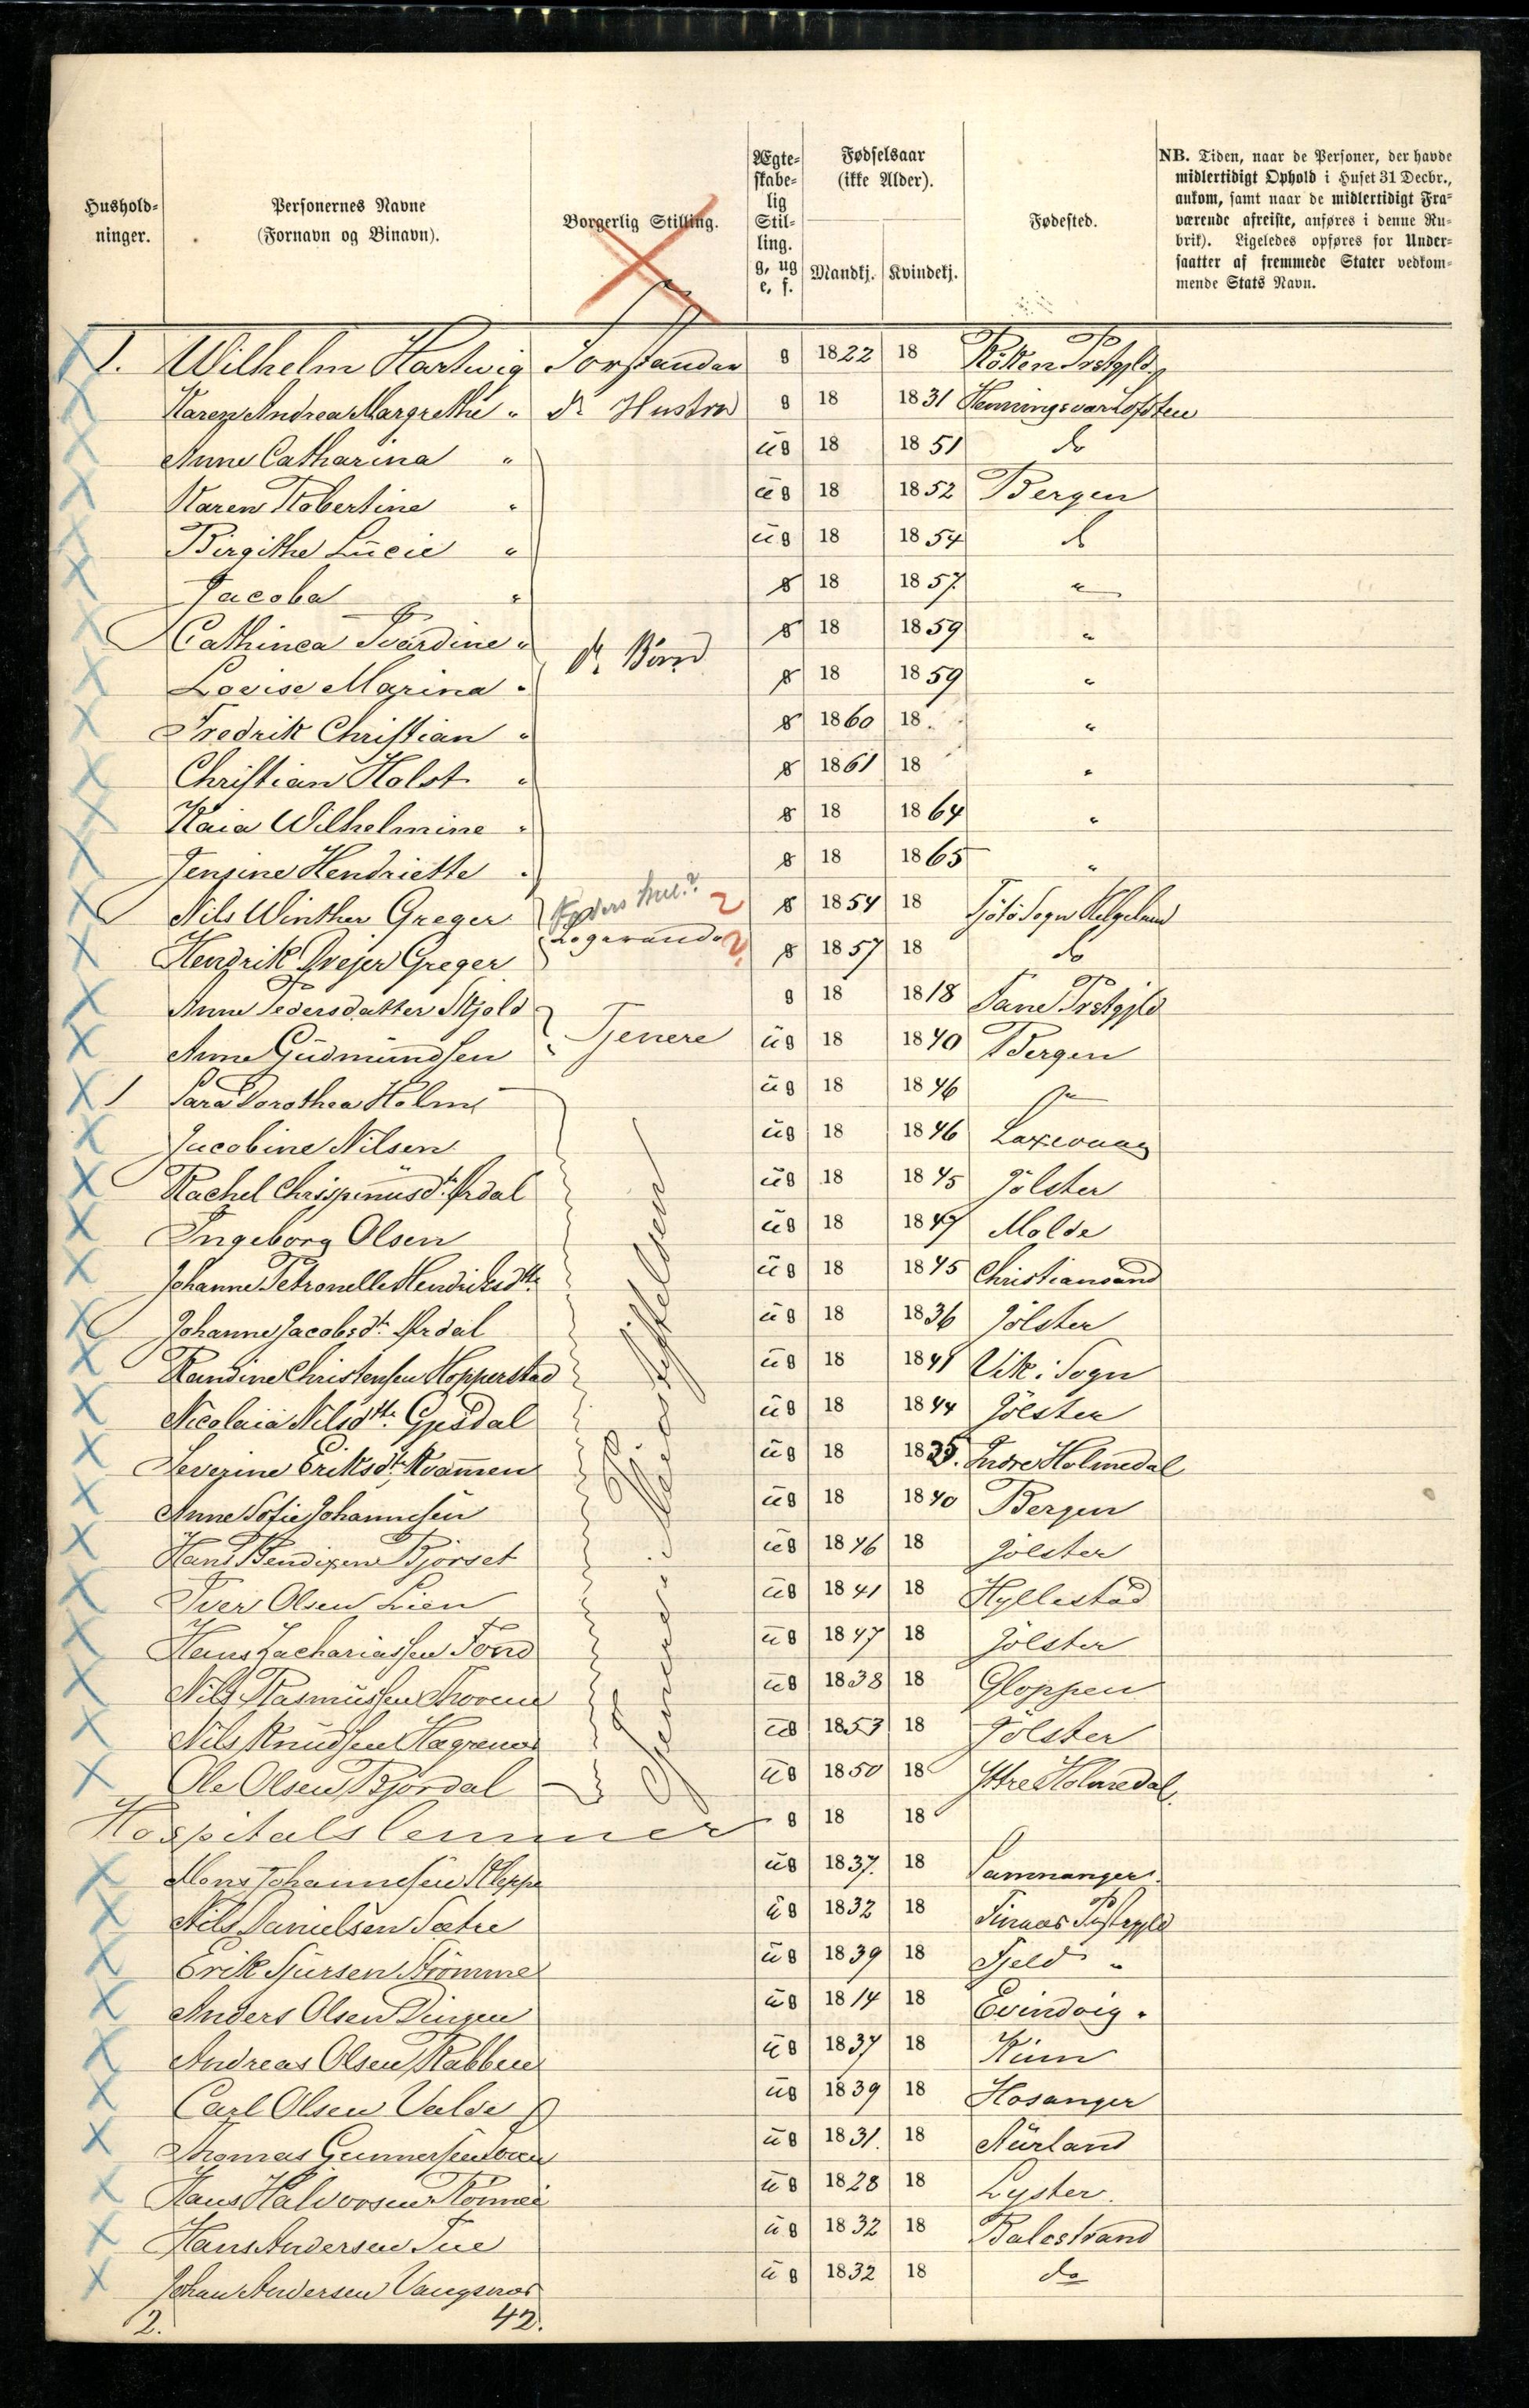 Hushold-
ninger.
Personernes Navne
(Fornavn og Binavn).
Borgerlig Stilling.
Ægte-
skabe-
lig
Stil-
ling.
g, ug
e, f.
Fødselsaar
(ikke Alder).
Mandkj.
Kvindekj.
Fødested.
NB. Tiden, naar de Personer, der havde
midlertidigt Ophold i Huset 31 Decbr.,
ankom, samt naar de midlertidigt Fra-
værende afreiste, anføres i denne Ru-
brik). Ligeledes opføres for Under-
saatter af fremmede Stater vedkom-
mende Stats Navn.
1. Wilhelm Hartwig Forstander g 1822 18 Røken Prstgjld
Karen Andrea Margrethe " ds Hustru g 18 1831 Henningsvær Lofoten
Anne Catharina " ug 18 1851 do
Karen Robertine " ug 18 1852 Bergen
Birgithe Lucie " ug 18 1854 do
Jacoba " g 18 1857. "
Cathinca Ivardine " ds Børn g 18 1859 "
Lovise Marina " g 18 1859 "
Fredrik Christian " g 1860 18 "
Christian Holst " g 1861 18 "
Kaia Wilhelmine " g 18 1864 "
Jensine Hendriette " g 18 1865 "
Nils Winther Greger Logerende g 1854 18 Tjøtø Sogn Helgeland
Hendrik Dreyer Greger g 1857 18 do
Anne Pedersdatter Skjold g 18 1818 Fane Prstgjld
Anne Gudmundsen Tjenere ug 18 1840 Bergen
1 Sara Dorothea Holm ug 18 1846 "
Jacobine Nilsen ug 18 1846 Laxevaag
Rachel Chrispinusdt. Årdal ug 18 1845 Jølster
Ingeborg Olsen ug 18 1847 Molde
Johanne Petronelle Hendriksdtt. ug 18 1845 Christiansand
Johanne Jacobsdt. Årdal ug 18 1836 Jølster
Randine Christensen Hopperstad ug 18 1841 Vik i Sogn
Nicolaia Nilsdtt. Gjesdal ug 18 1844 Jølster
Severine Eriksdt. Kvammen ug 18 1835. Indre Holmedal
Anne Sofie Johannesen ug 18 1840 Bergen
Hans Bendixen Bjørset ug 1846 18 Jølster
Iver Olsen Lien ug 1841 18 Hyllestad
Hans Zachariassen Fond ug 1847 18 Jølster
Nils Rasmussen ug 1838 18 Gloppen
Nils Knudsen ug 1853 18 Jølster
Ole Olsen Bjordal ug 1850 18 Ytre Holmedal
Tjenere i Pleiestiftelsen
Hospitalslemmer g 18 18
Mons Johannesen Kleppe ug 1837. 18 Samnanger
Nils Danielsen Sætre ug 1832 18 Finaas Prstgjld
Erik Sjursen Strømme ug 1839 18 Fjeld "
Anders Olsen Dingen ug 1814 18 Evindvig "
Andreas Olsen Rabben ug 1837 18 Kinn
Carl Olsen ug 1839 18 Hosanger
Thomas Gunnersen ug 1831. 18 Aurland
Hans Halvorsen ug 1828 18 Lyster.
Hans Andersen Tue ug 1832 18 Balestrand
Johan Andersen Vangsnæs ug 1832 18 do
2. 42.